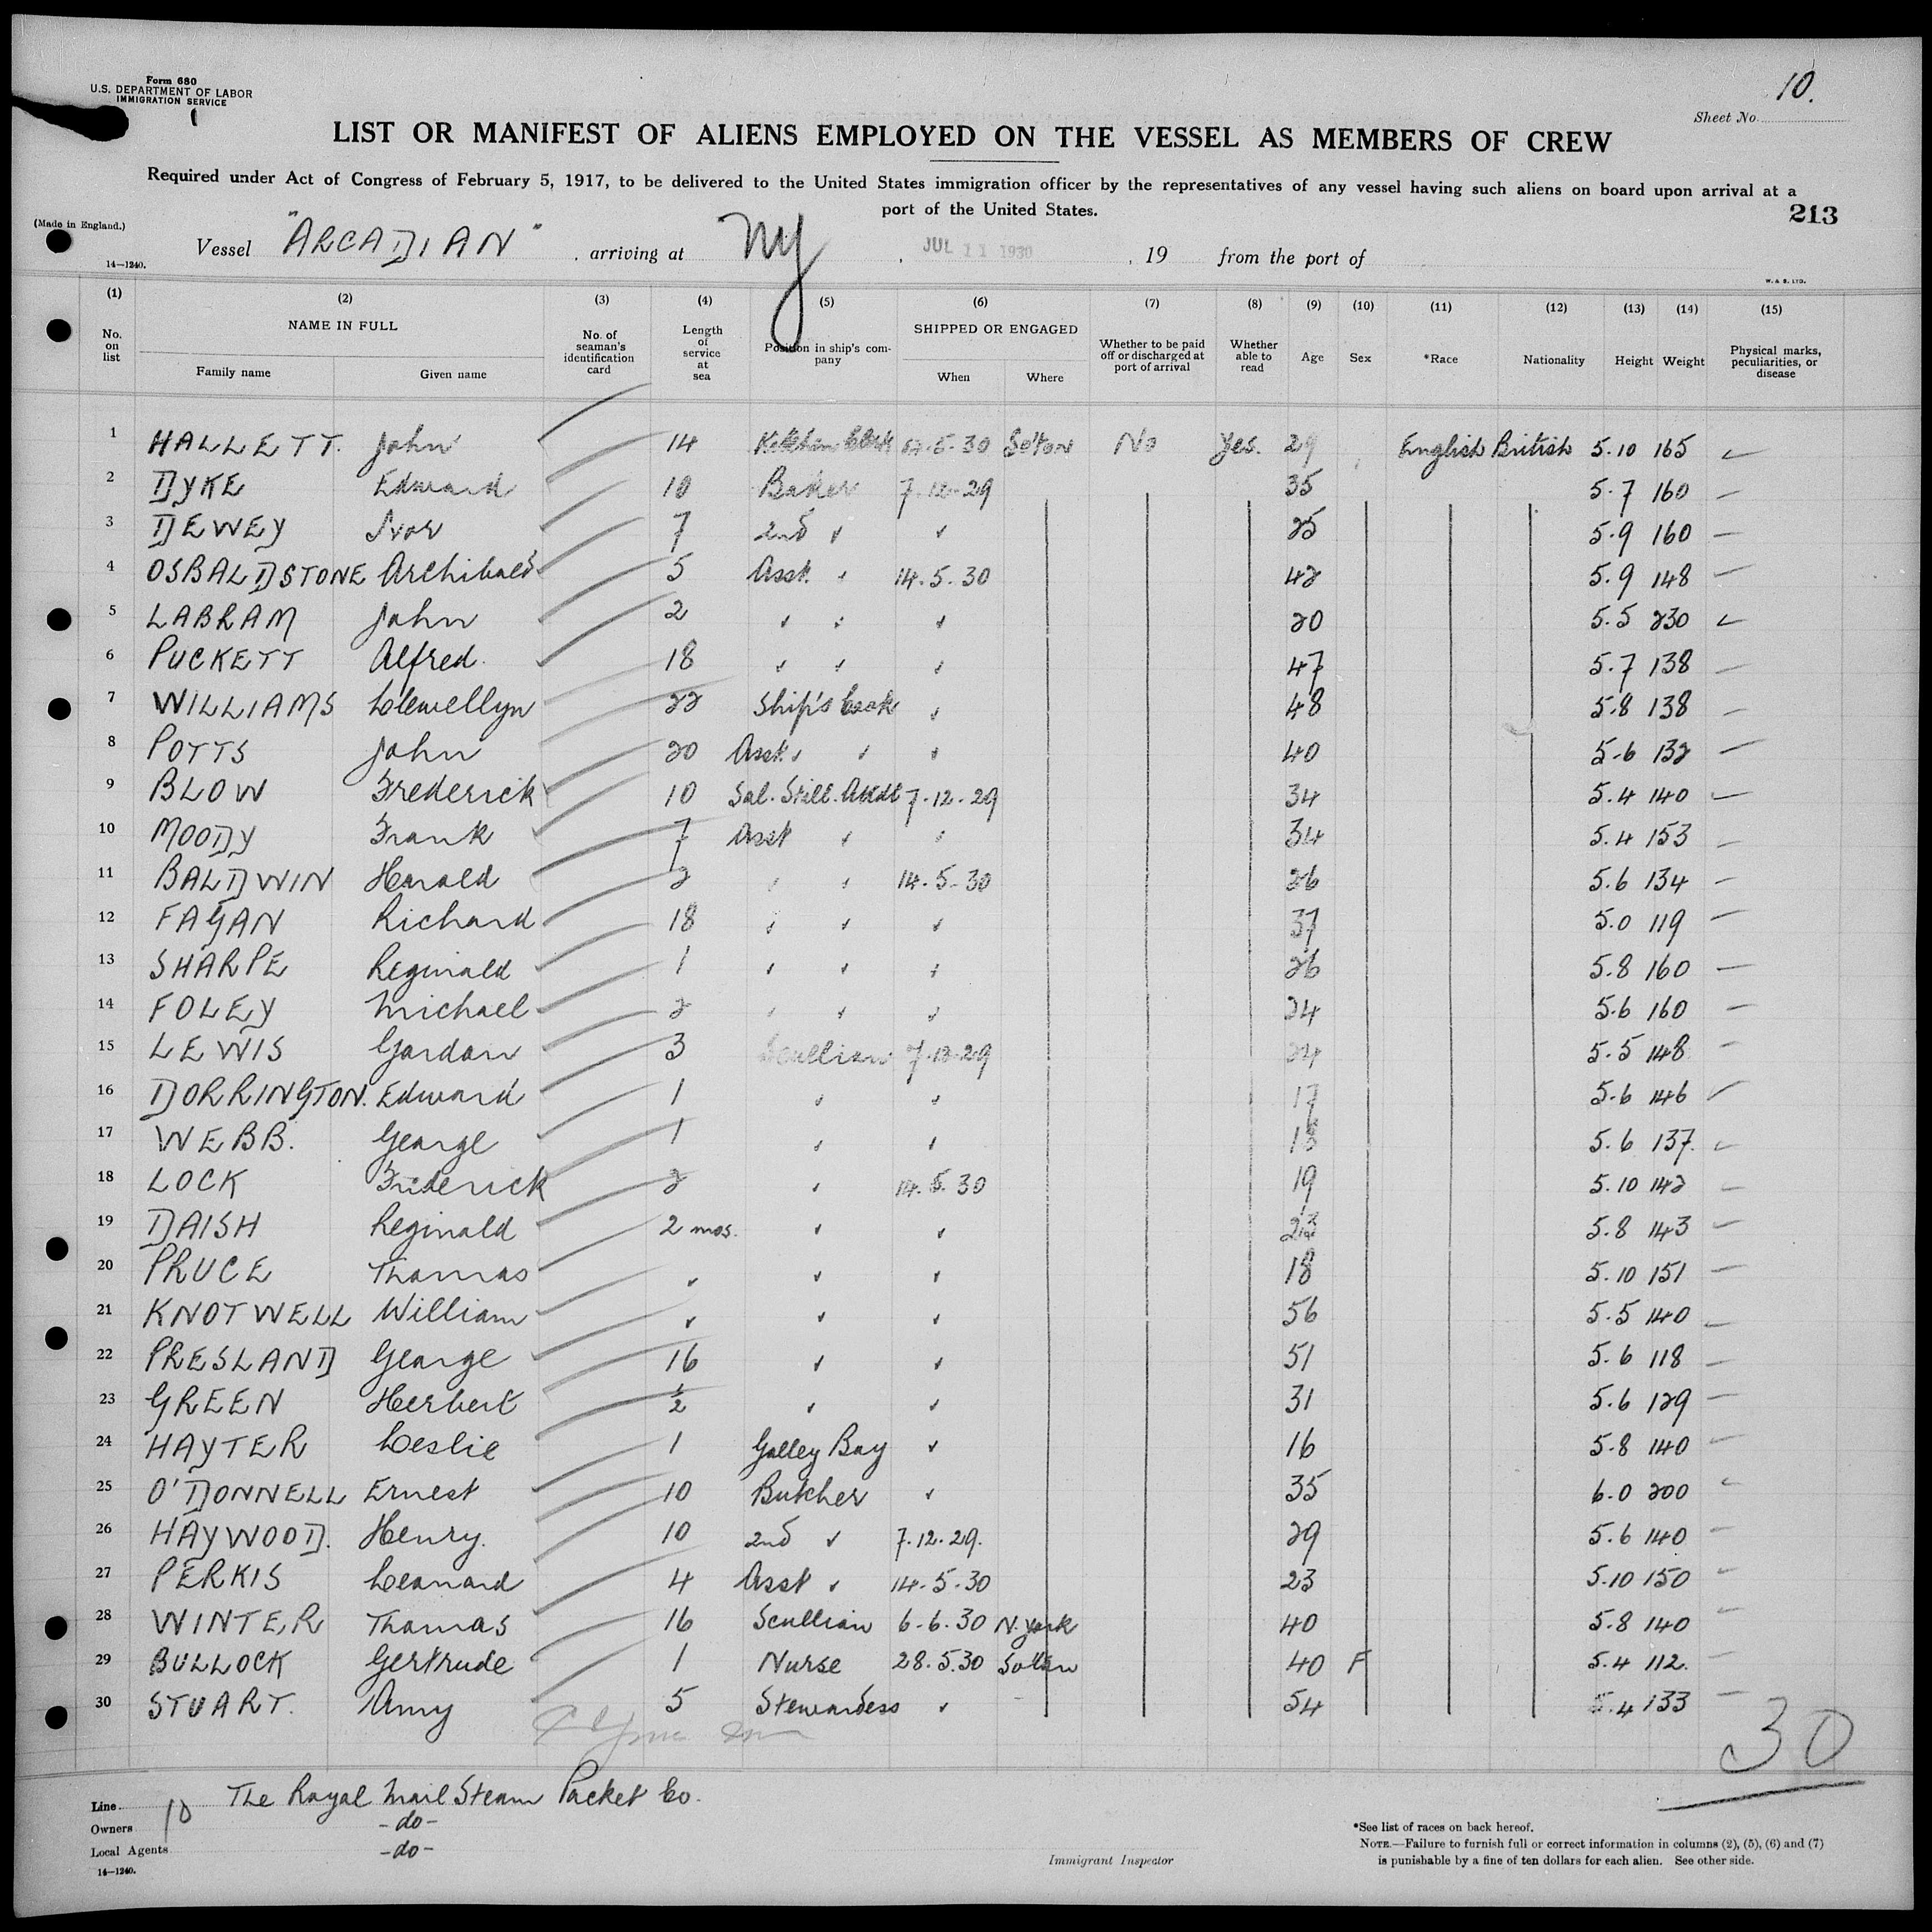 Form 680
U.S. DEPARTMENT OF LABOR
IMMIGRATION SERVICE
10.
Sheet No.
LIST OR MANIFEST OF ALIENS EMPLOYED ON THE VESSEL AS MEMBERS OF CREW
Required under Act of Congress of February 5, 1917, to be delivered to the United States immigration officer by the representatives of any vessel having such aliens on board upon arrival at a
port of the United States.
213
(Made in England.)
Vessel "ARCADIAN", arriving at NY, JUL 11 1930, 19 from the port of
14—1240.
W. & S. LTD.
(1) (2) (3) (4) (5) (6) (7) (8) (9) (10) (11) (12) (13) (14) (15)
No. on list NAME IN FULL Family name Given name No. of seaman's identification card Length of service at sea Position in ship's company SHIPPED OR ENGAGED When Where Whether to be paid off or discharged at port of arrival Whether able to read Age Sex *Race Nationality Height Weight Physical marks, peculiarities, or disease
1 HALLETT. John 14 Kitchen Clerk 5.30 Soton No Yes. 29 English British 5.10 165
2 DYKE Edward 10 Baker 7.12.29 35 5.7 160
3 DEWEY Ivor 7 2nd " " 25 5.9 160
4 OSBALDSTONE Archibald 5 Asst. " 14.5.30 42 5.9 148
5 LABRAM John 2 " " " 20 5.5 230
6 PUCKETT Alfred. 18 " " " 47 5.7 138
7 WILLIAMS Llewellyn 22 Ship's Cook " 48 5.8 138
8 POTTS John 20 Asst. " " " 40 5.6 132
9 BLOW Frederick 10 Sal. Still. Attdt 7.12.29 34 5.4 140
10 MOODY Frank 7 Asst " " 34 5.4 153
11 BALDWIN Harold 2 " " 14.5.30 26 5.6 134
12 FAGAN Richard 18 " " " 37 5.0 119
13 SHARPE Reginald 1 " " " 26 5.8 160
14 FOLEY Michael 2 " " " 24 5.6 160
15 LEWIS Gordon 3 Scullion 7.12.29 24 5.5 148
16 DORRINGTON. Edward 1 " " 17 5.6 146
17 WEBB. George 1 " " 5.6 137.
18 LOCK Frederick 2 " 14.5.30 19 5.10 142
19 DAISH Reginald 2 mos. " " 23 5.8 143
20 PRUCE Thomas " " " 18 5.10 151
21 KNOTWELL William " " " 56 5.5 140
22 PRESLAND George 16 " " 51 5.6 118
23 GREEN Herbert ½ " " 31 5.6 129
24 HAYTER Leslie 1 Galley Boy " 16 5.8 140
25 O'DONNELL Ernest 10 Butcher " 35 6.0 200
26 HAYWOOD. Henry. 10 2nd " 7.12.29. 29 5.6 140
27 PERKIS Leonard 4 Asst " 14.5.30 23 5.10 150
28 WINTER Thomas 16 Scullion 6.6.30 N. York 40 5.8 140
29 BULLOCK Gertrude 1 Nurse 28.5.30 Soton 40 F 5.4 112.
30 STUART. Amy 5 Stewardess " 54 5.4 133
30
Line The Royal Mail Steam Packet Co.
10
Owners -do-
Local Agents -do-
14—1240.
Immigrant Inspector
*See list of races on back hereof.
NOTE.—Failure to furnish full or correct information in columns (2), (5), (6) and (7)
is punishable by a fine of ten dollars for each alien. See other side.